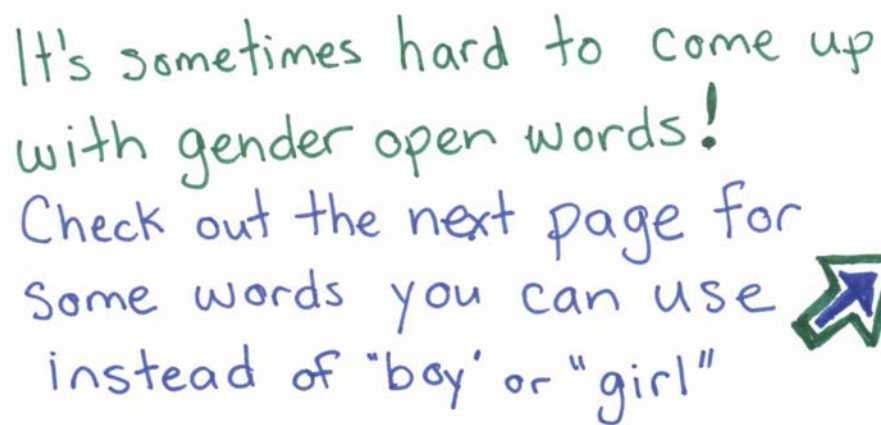 It's sometimes hard to come up
with gender open words!
Check out the next page for
some words you can use
instead of "boy' or "girl"